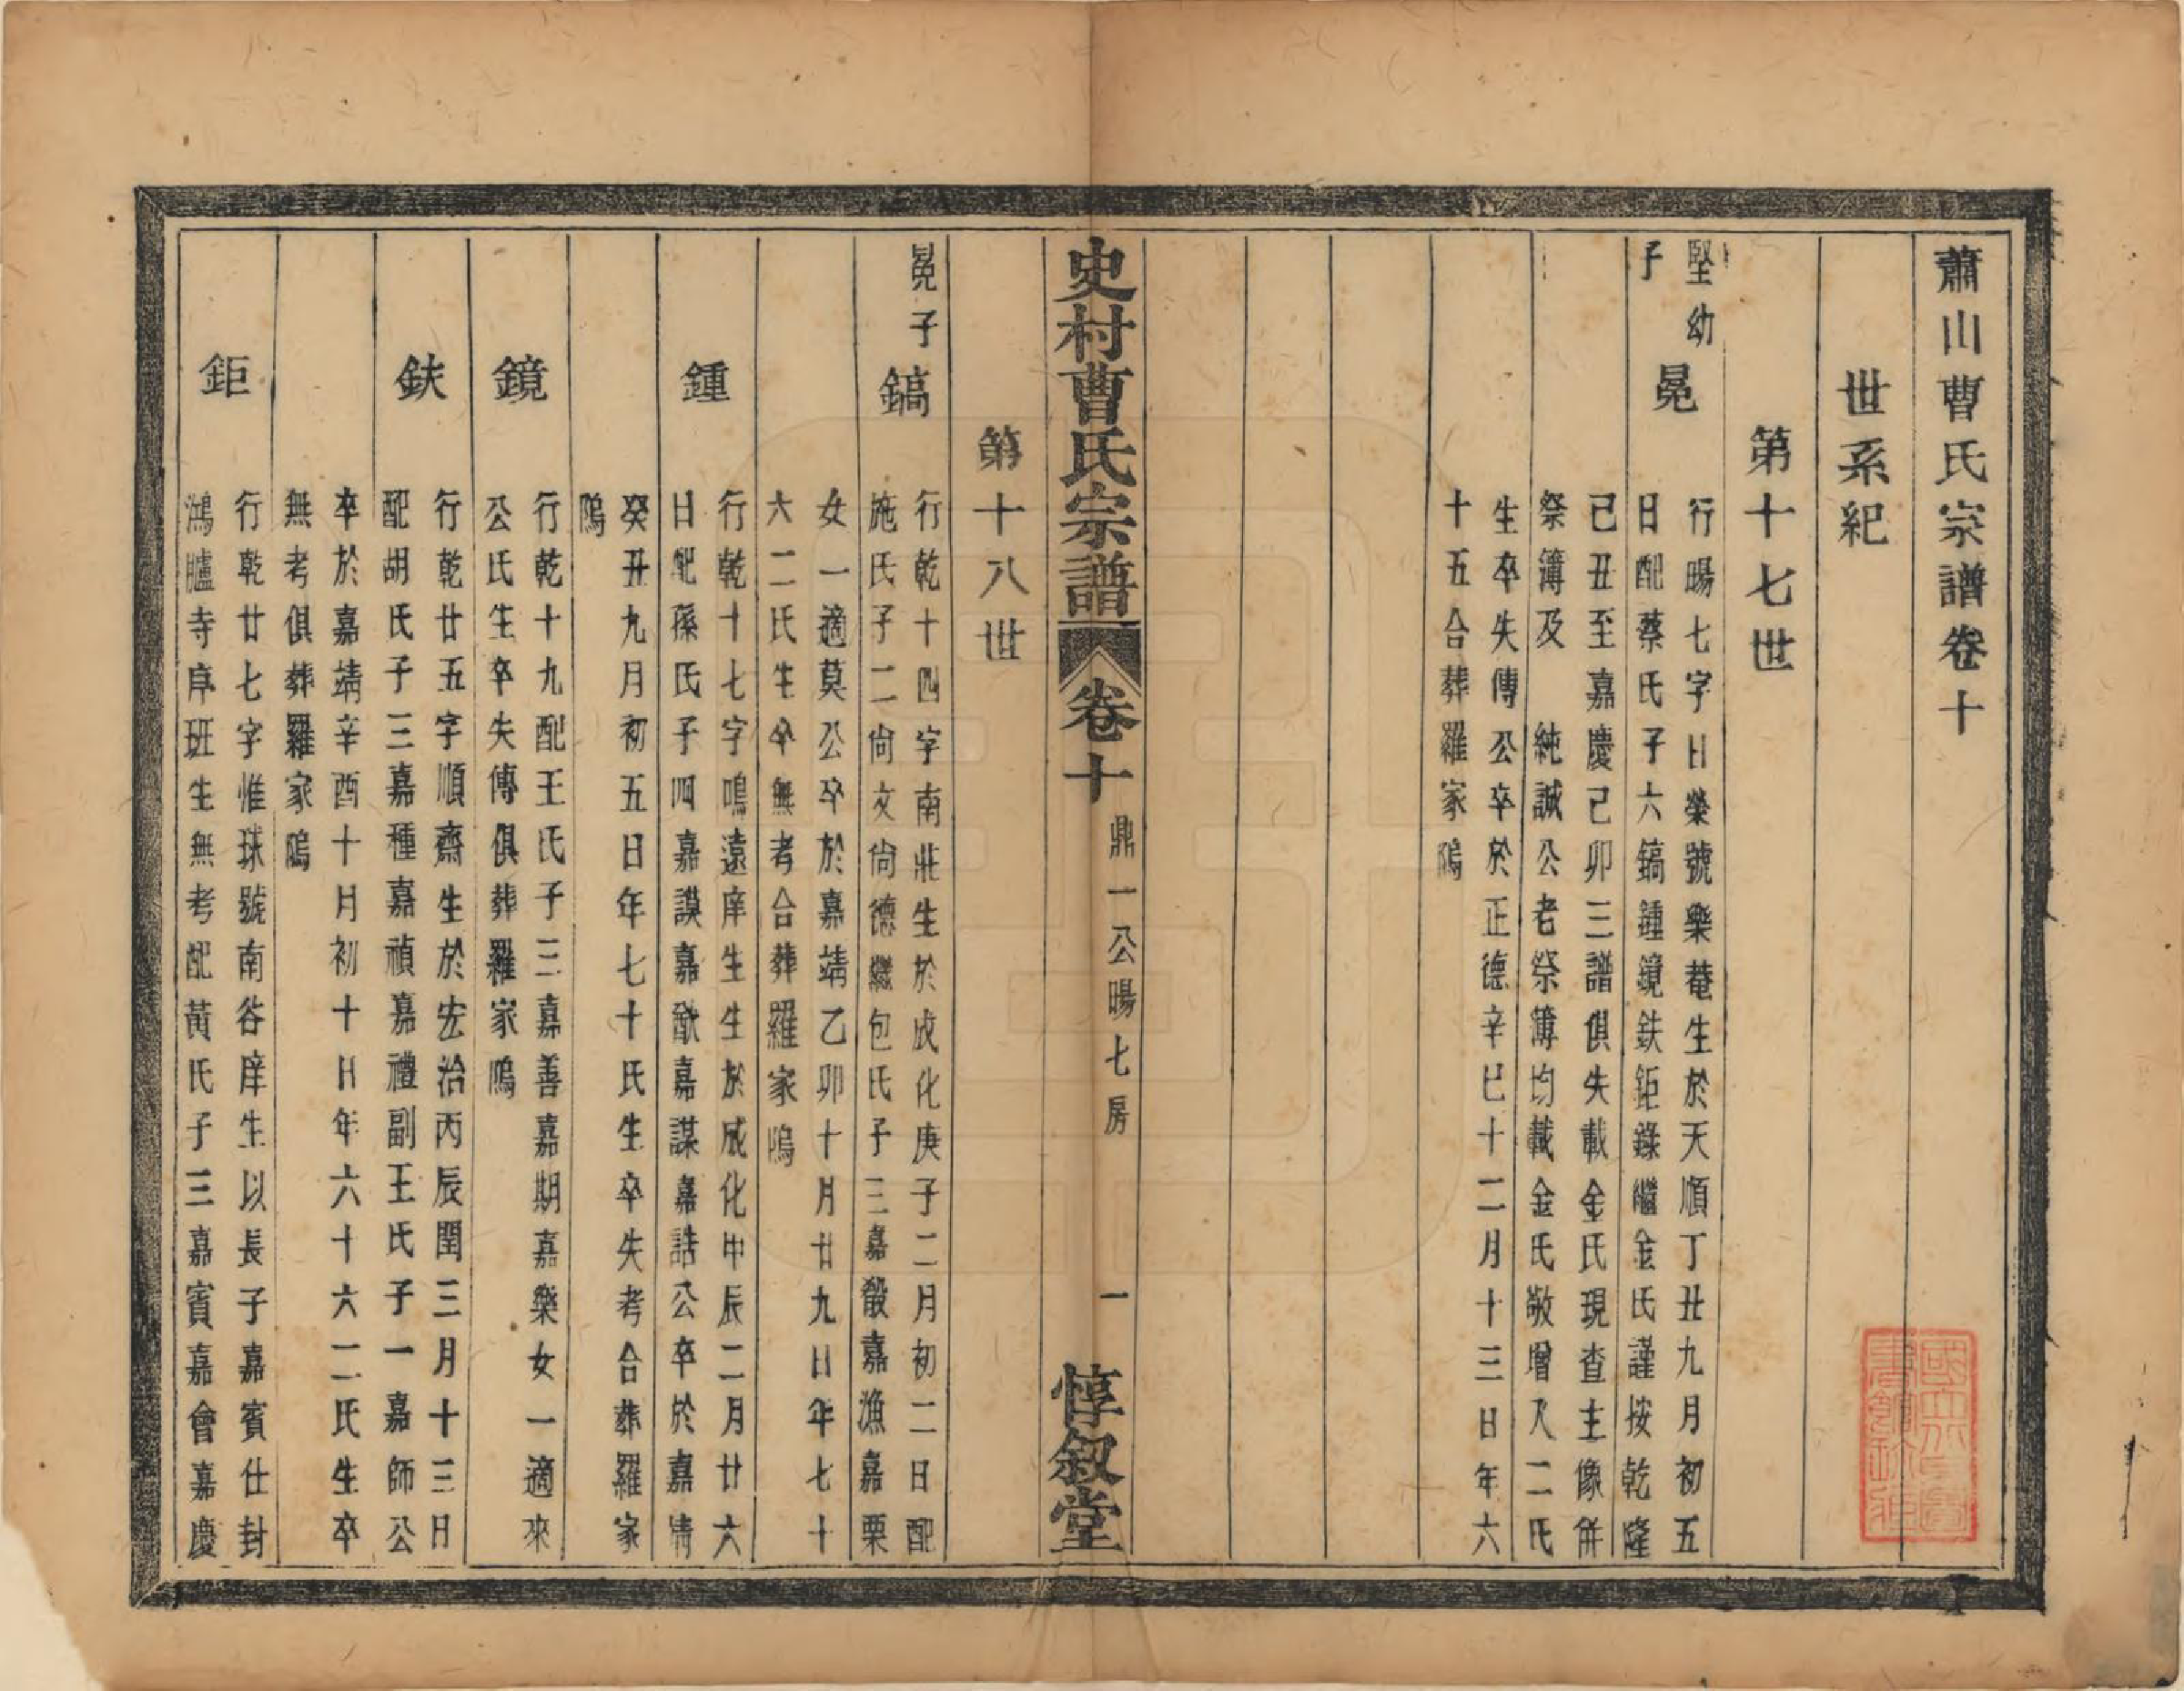 蕭山曹氏宗譜卷十
世系紀
第十七世
堅幼
子
冕
行暘七字日榮號樂菴生於天順丁丑九月初五
日配蔡氏子六鎬鍾鏡鈇鉅錄繼金氏謹按乾隆
己丑至嘉慶己卯三譜俱失載金氏現查主像併
祭簿及 純誠公老祭簿均載金氏敬增入二氏
生卒失傳公卒於正德辛巳十二月十三日年六
十五合葬羅家隖
史村曹氏宗譜 卷十 鼎一公暘七房 一 惇叙堂
第十八世
冕子
鎬
行乾十四字南莊生於成化庚子二月初二日配
施氏子二尙文尙德繼包氏子三嘉殽嘉漁嘉栗
女一適莫公卒於嘉靖乙卯十月廿九日年七十
大二氏生卒無考合葬羅家隖
鍾
行乾十七字鳴遠庠生生於成化甲辰二月廿六
日配孫氏子四嘉謨嘉猷嘉謀嘉誥公卒於嘉靖
癸丑九月初五日年七十氏生卒失考合葬羅家
隖
鏡
行乾十九配王氏子三嘉善嘉期嘉樂女一適來
公氏生卒失傳俱葬羅家隖
鈇
行乾廿五字順齋生於宏治丙辰閏三月十三日
配胡氏子三嘉種嘉禎嘉禮副王氏子一嘉師公
卒於嘉靖辛酉十月初十日年六十六二氏生卒
無考俱葬羅家隖
鉅
行乾廿七字惟球號南谷庠生以長子嘉賓仕封
鴻臚寺序班生無考配黃氏子三嘉賓嘉會嘉慶